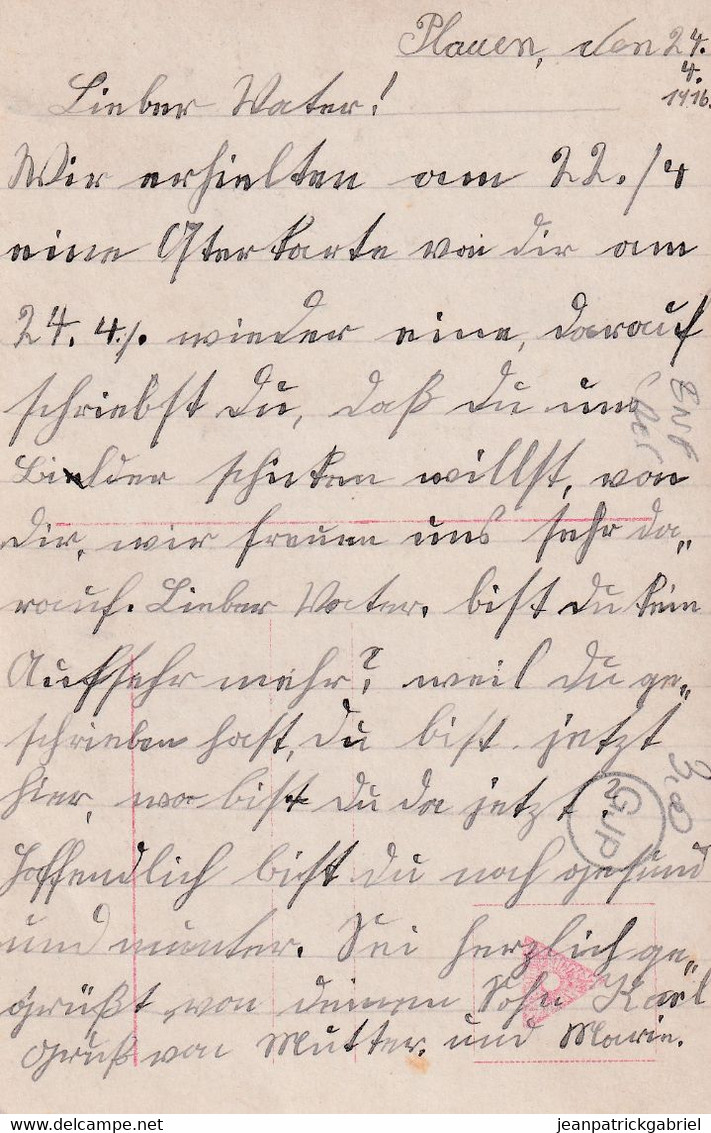 Plauen, den 24.
4.
1916.
Lieber Vater!
Wir erhielten am 22./4
eine Osterkarte von dir am
24. 4./. wieder eine, darauf
schriebst Du, daß du uns
Bielder schicken willst, von
dir, wir freuen uns sehr da„
rauf. Lieber Vater, bist du kein
Aufsehr mehr? weil du ge„
schrieben hast, du bist jetzt
hier, wo bist du da jetzt.
Hoffendlich bist du noch gesund
und munter. Sei herzlich ge„
grüßt von deinen Sohn Karl
Gruß von Mutter. und Marie.
GJP
jeanpatrickgabriel